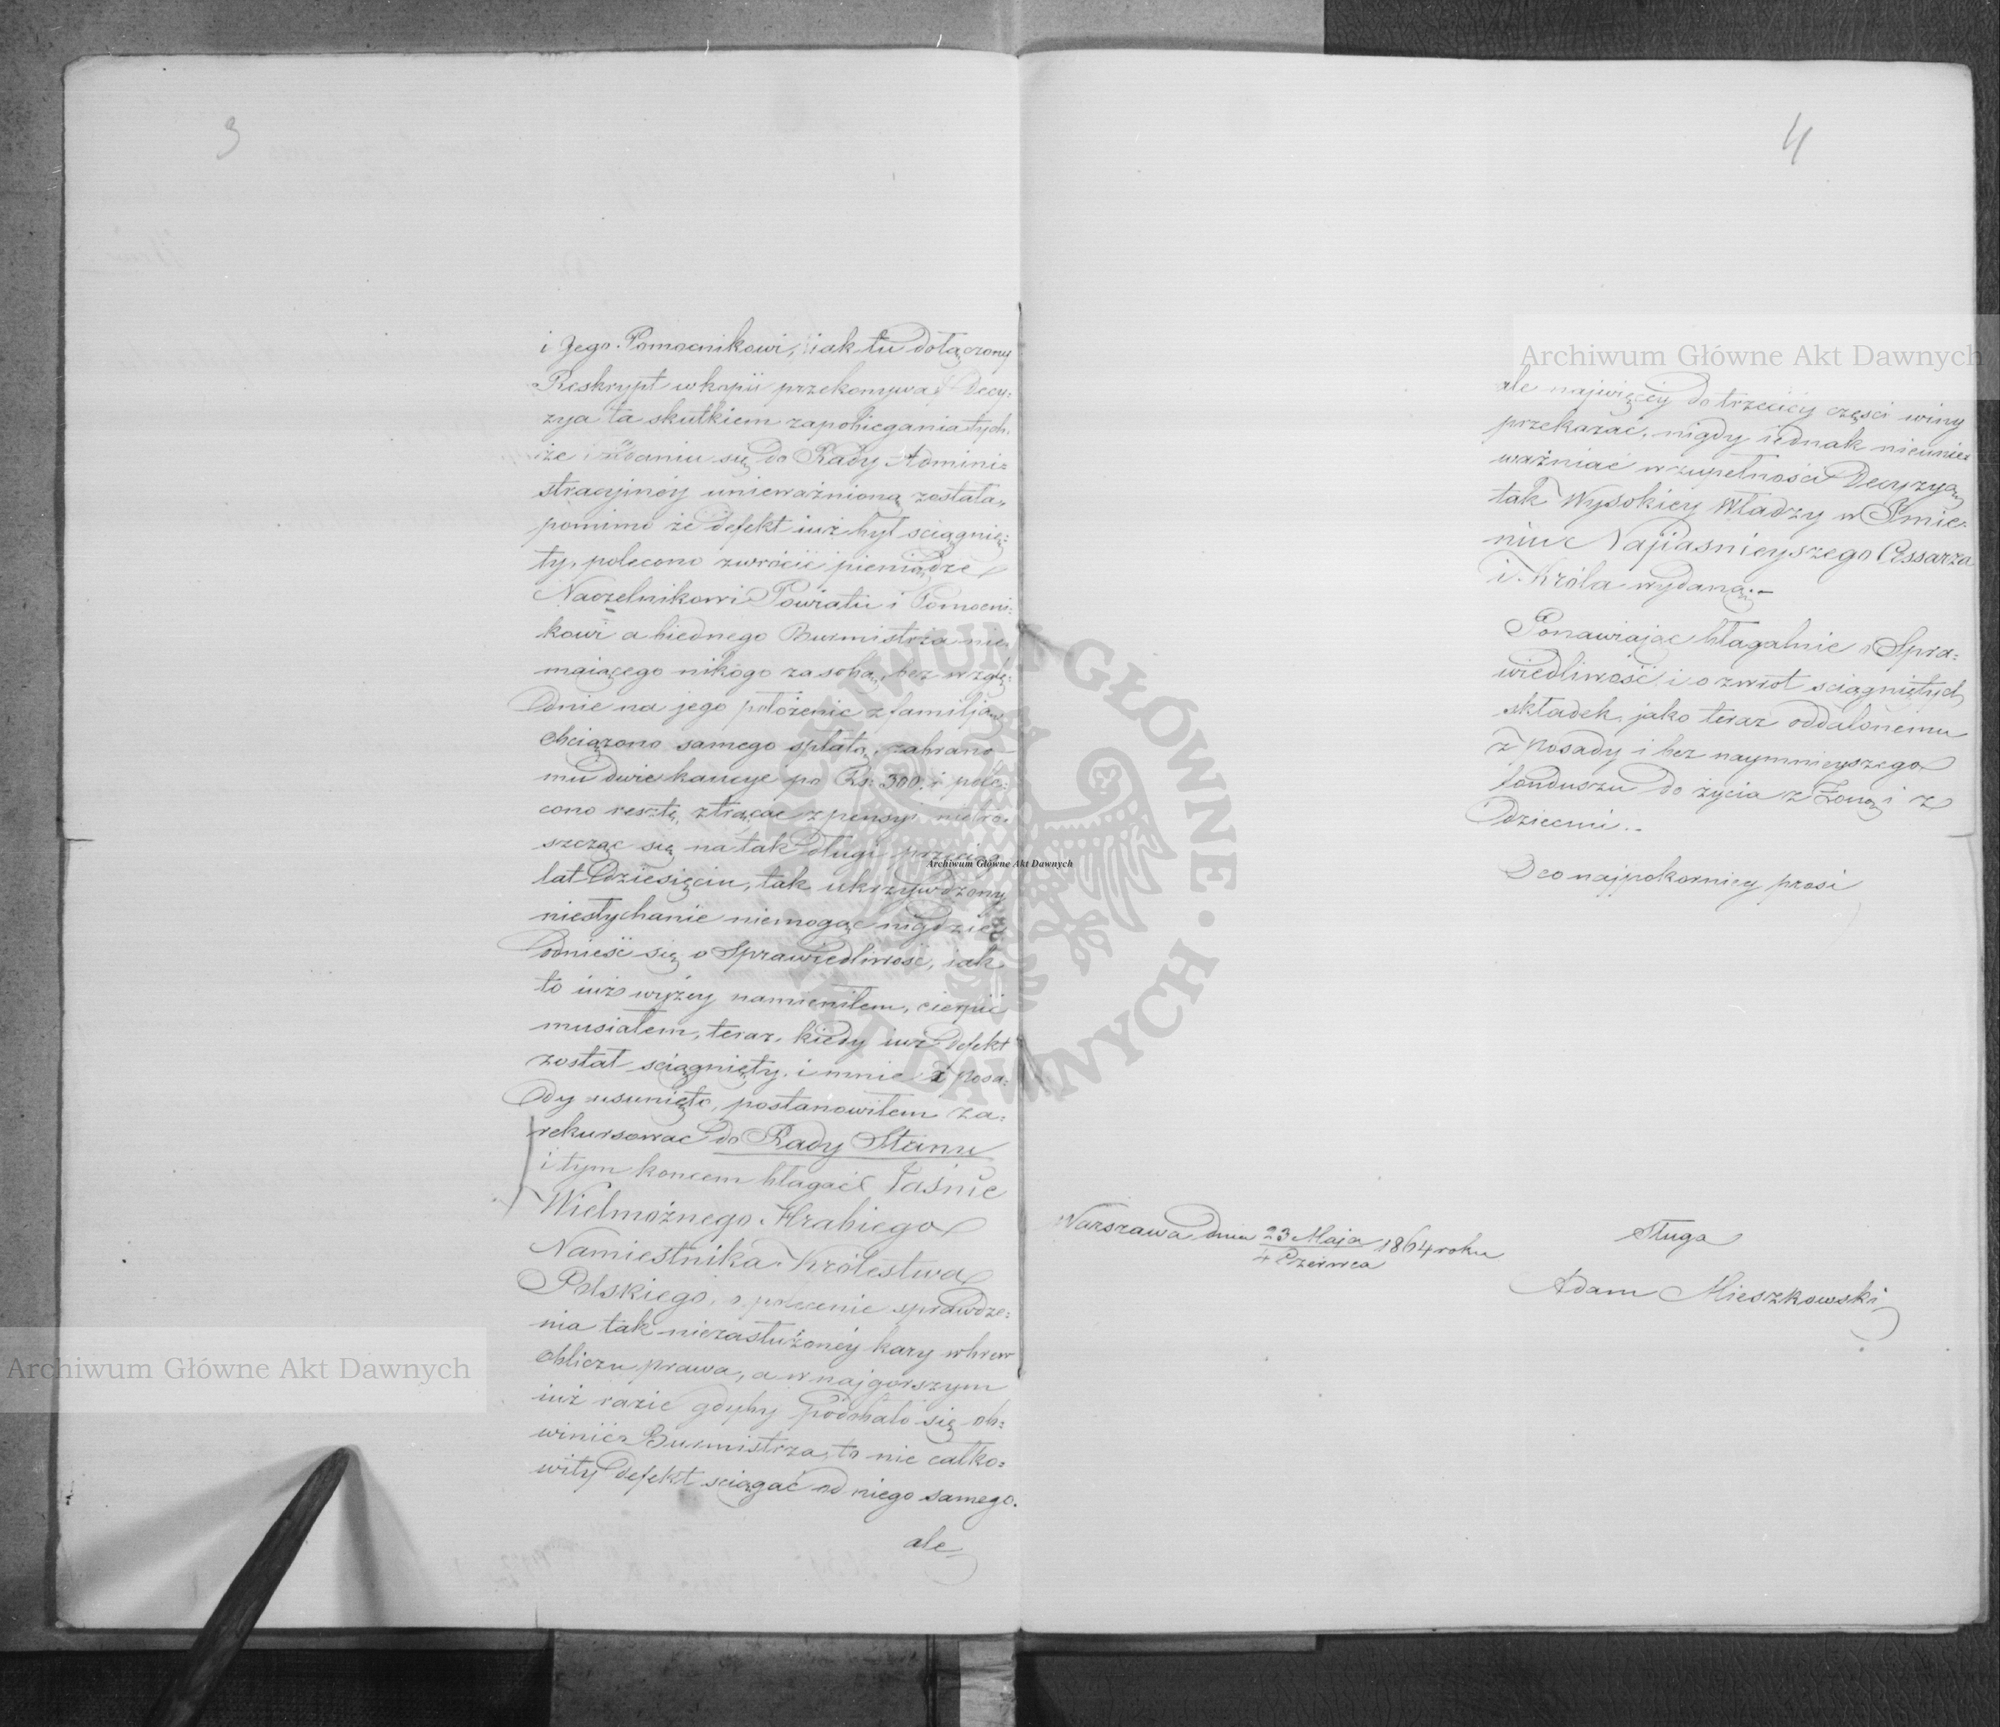 3
i Jego Pomocnikowi, iak tu dołączony
Reskrypt w kopii przekonywa. Decy-
zya ta skutkiem zapobiegania tych-
że i udaniu się do Rady Admini-
stracyjnéy unieważnioną została,
pomimo że defekt iuż był sciągnię-
ty, polecono zwrócić pieniądze
Naczelnikowi Powiatu i Pomocni-
kowi a biednego Burmistrza nie
maiącego nikogo za sobą, bez wzglę-
dnie na jego położenie z familją
obciążono samego spłatą, zabrano
mu dwie kaucye po Rs: 300. i pole-
cono resztę ztrącać z pensyi nietro-
szcząc się na tak długi przeciąg
lat dziesięciu, tak ukrzywdzony
niesłychanie niemogąc nigdzie
odnieść się o Sprawiedliwość, iak
to iuż wyżey namieniłem, cierpić
musiałem, teraz, kiedy iuż defekt
został sciągnięty i mnie z Posa-
dy usunięto, postanowiłem za-
rekursować do Rady Stanu
i tym koncem błagać Jaśnie
Wielmożnego Hrabiego
Namiestnika Królestwa
Polskiego, o polecenie sprawdze-
nia tak niezasłużonéy kary wbrew
obliczu prawa, a w najgorszym
iuż razie gdyby podobało się ob-
winić Burmistrza, to nie całko-
wity defekt sciągać od niego samego.
ale
4
ale najwięcéy do trzeciéy części winy
przekazać, nigdy iednak nieunie-
ważniać w zupełności Decyzyą
tak Wysokiey Władzy w Imie-
niu Najiasnieyszego Cessarza
i Króla wydaną.-
Ponawiając błagalnie o Spra-
wiedliwość i o zwrot sciągniętych
składek, jako teraz oddalonemu
z Posady i bez naymnieyszego
funduszu do życia z Żoną i z
Dziecmi.-
O co najpokorniey prosi
Warszawa dnia 23 Maja 1864 roku
4 Czerwca
Sługa
Adam Mieszkowski
Archiwum Główne Akt Dawnych
Archiwum Główne Akt Dawnych
Archiwum Główne Akt Dawnych
ARCHIWUM GŁÓWNE AKT DAWNYCH